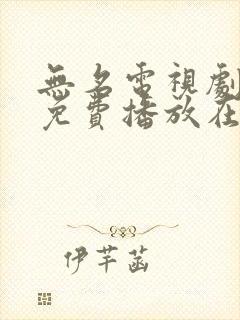 無名電視劇
免費播放在
伊芊菡